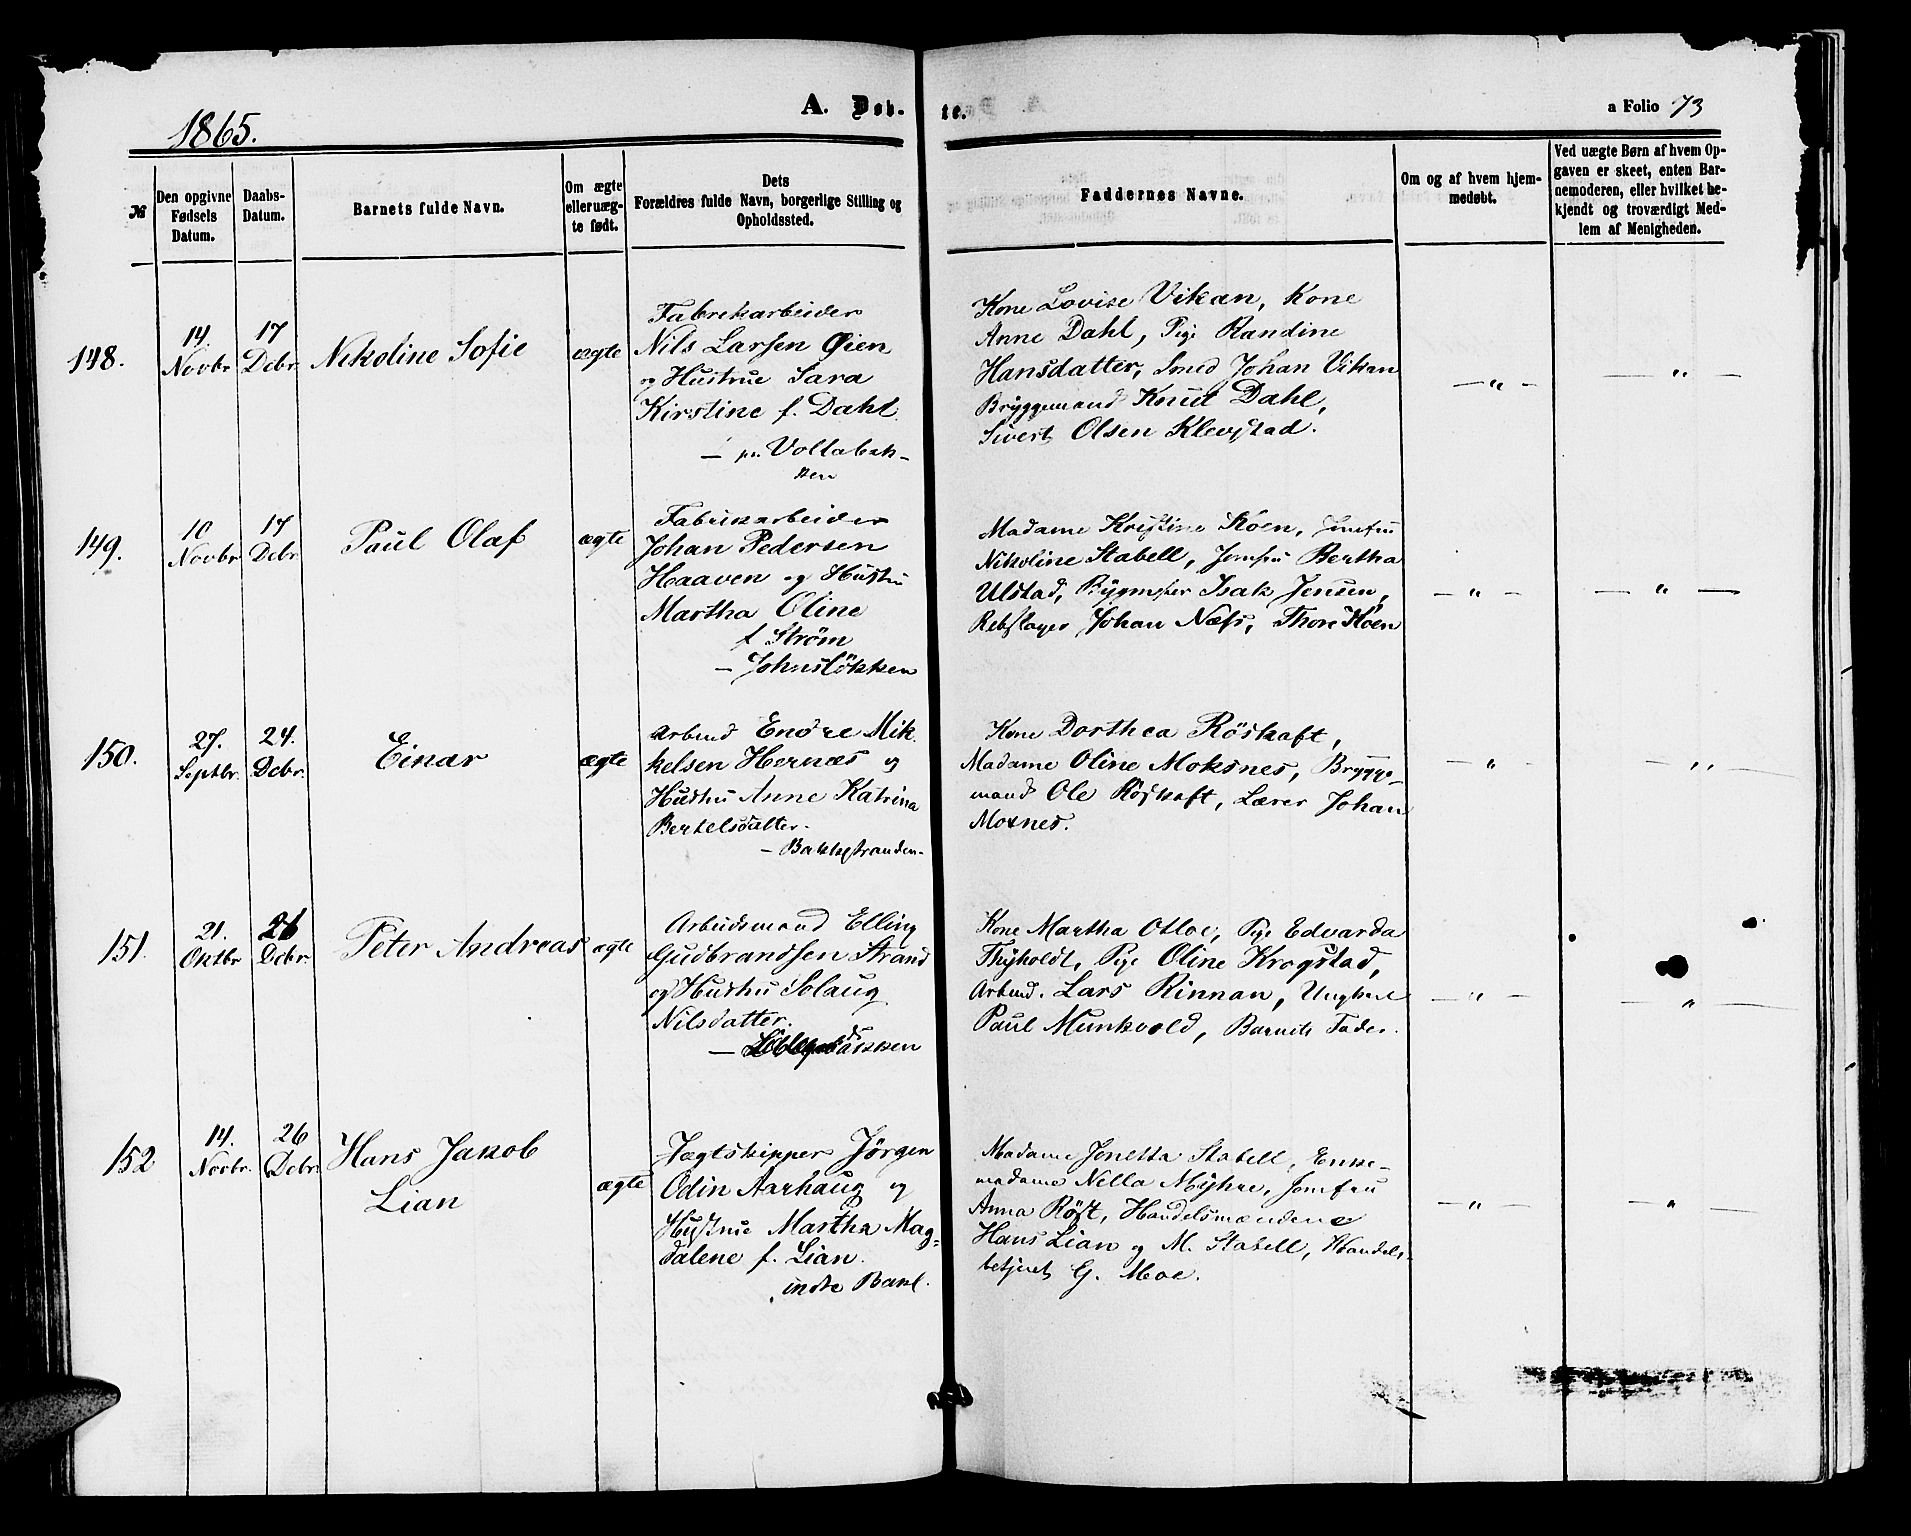 1865.
A. Døb-
te.
a Folio 73
№
Den opgivne
Fødsels
Datum.
Daabs-
Datum.
Barnets fulde Navn.
Om ægte
eller uæg-
te født.
Dets
Forældres fulde Navn, borgerlige Stilling og
Opholdssted.
Faddernes Navne.
Om og af hvem hjem-
medøbt.
Ved uægte Børn af hvem Op-
gaven er skeet, enten Bar-
nemoderen, eller hvilket be-
kjendt og troværdigt Med-
lem af Menigheden.
148.
14.
Novbr
17
Debr.
Nikoline Sofie
ægte
Fabrikarbeider
Nils Larsen Øien
og Hustrue Sara
Kirstine f. Dahl
— Vollabak-
ken
Kone Lovise Vikan, Kone
Anne Dahl, Pige Randine
Hansdatter, Smed Johan Vikan
Bryggemand Knut Dahl,
Sivert Olsen Klevstad.
— " —
— " —
149.
10
Novbr
17
Debr
Paul Olaf
ægte
Fabrikarbeider
Johan Pedersen
Haaven og Hustru
Martha Oline
f Strøm
— Johnsløkken
Madame Kristine Koen, Jomfru
Nikoline Stabell, Jomfru Bertha
Ulstad, Bygmster Isak Jensen,
Rebslager Johan Næss, Thore Koen
— " —
— " —
150.
27.
Septbr.
24.
Debr.
Einar
ægte
Arbmd Endre Mik
kelsen Hernæs og
Hustru Anne Katrina
Bertelsdatter.
— Bakkestranden
Kone Dorthea Röskaft,
Madame Oline Moksnes, Brygge-
mand Ole Röskaft, Lærer Johan
Moxnes.
— " —
— " —
151.
21.
Oktbr
26
Debr.
Peter Andreas
ægte
Arbeidsmand Elling
Gudbrandsen Strand
og Hustru Solaug
Nilsdatter.
Kone Martha Otloe, Pige Edvarda
Thyholdt, Pige Oline Krogstad,
Arbmd. Lars Rinnan, Ungkarl
Paul Munkvold, Barnets Fader.
— " —
— " —
152
14.
Novbr.
26
Debr.
Hans Jakob
Lian
ægte
Jægtskipper Jørgen
Odin Aarhaug og
Hustrue Martha Mag-
dalene f. Lian.
indre Bakl.
Madame Jonetta Stabell, Enke-
madame Nella Myhre, Jomfru
Anna Röst, Handelsmændene
Hans Lian og M. Stabell, Handels-
betjent G. Moe.
— " —
— " —